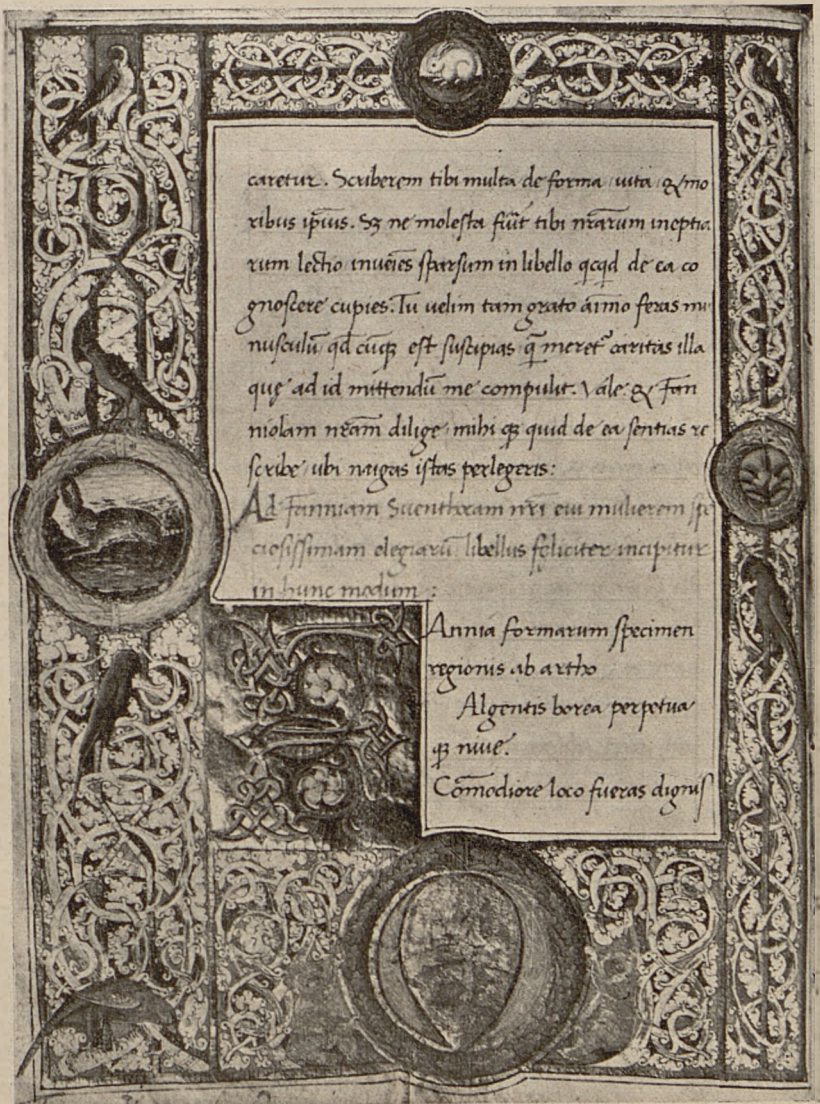 caretur. Scriberem tibi multa de forma uita & mo
ribus ip̄ius. Sʒ ne molesta fūt tibi nr̄arum ineptia
rum lectio inueīes sparsum in libello qcqd de ea co
gnoscere cupies. Tu uelim tam grato āimo feras mu
nusculū qd cūqʒ est suscipias q̄ meret᷑ caritas illa
quę ad id mittendū me compulit. Vale & Fan
niolam nr̄am dilige mihi qʒ quid de ea sentias re
scribe ubi nugas istas perlegeris:
Ad Fanniam Suentheram nr̄i eui mulierem spe
ciosissimam elegiarū libellus fęliciter incipitur
in hunc modum:
Annia formarum specimen
regionis ab artho
Algentis borea perpetua
qʒ niue.
Com̄odiore loco fueras dignis